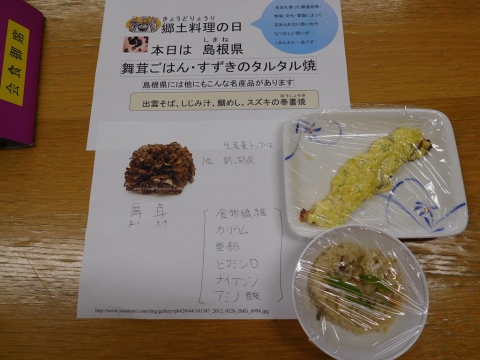 会食御席
きょうどりょうり
郷土料理の日
しまね
本日は 島根県
舞茸ごはん・すずきのタルタル焼
島根県には他にもこんな名産品があります
ほうしょやき
出雲そば、しじみ汁、鯛めし、スズキの奉書焼
1位 新潟県
舞茸
まい たけ
食物繊維
カリウム
亜鉛
ビタミンD
ナイアシン
アミノ酸